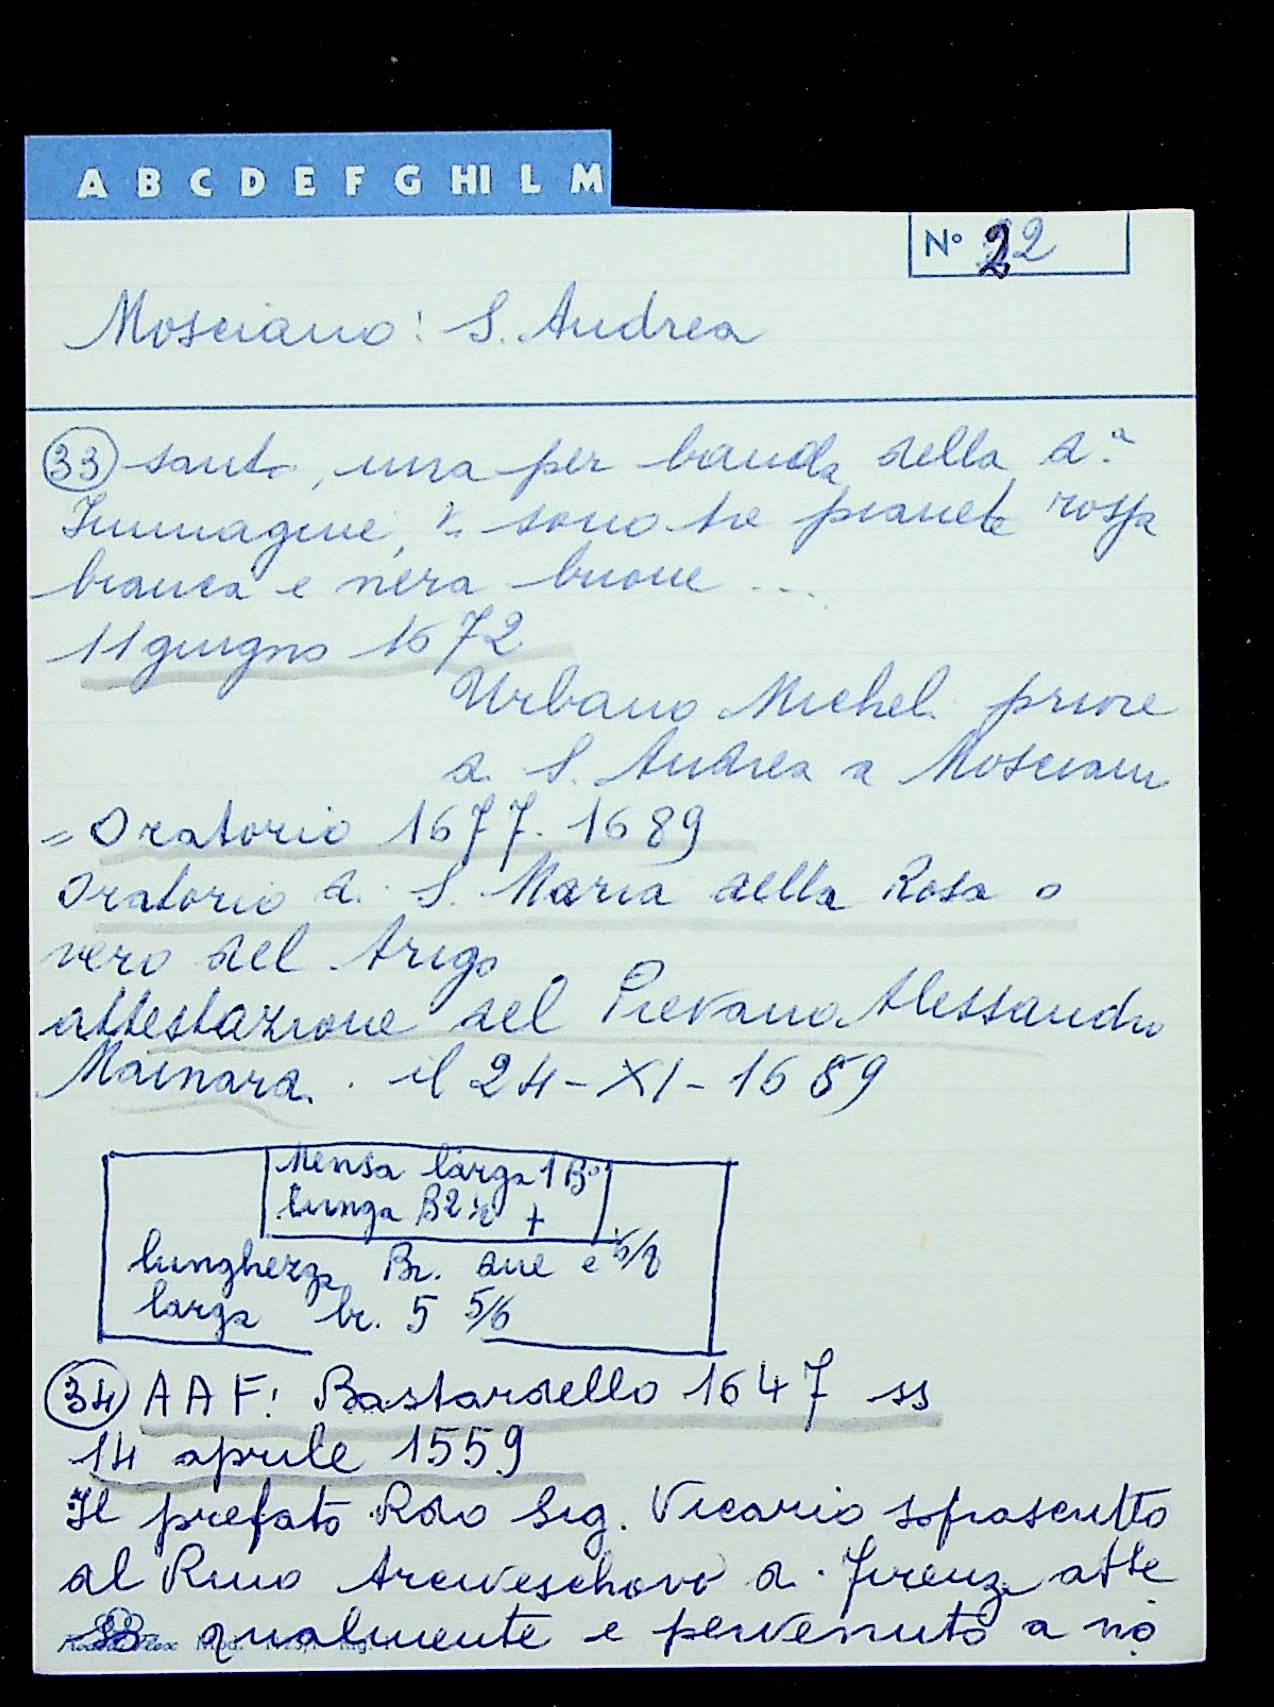 A B C D E F G HI L M
N° 22
Mosciano: S. Andrea
33 santi, una per banda della d.ª
Immagine, vi sono tre pianete rossa
bianca e nera buone ...
11 giugno 1672
Urbano Micheli priore
di S. Andrea a Mosciano
= Oratorio 1677. 1689
Oratorio di S. Maria della Rosa o
vero del Arigo
attestazione del Pievano Alessandro
Mainardi. il 24-XI-1689
Mensa larga 1 Bº
lunga B2 ½ +
lunghezza Br. due e
larga br. 5 5/6
34 AAF: Bastardello 1647 ss
14 aprile 1559
Il prefato Rdo Sig. Vicario soprascritto
al Rmo Arciveschovo di Firenze atte
so qualmente e pervenuto a no